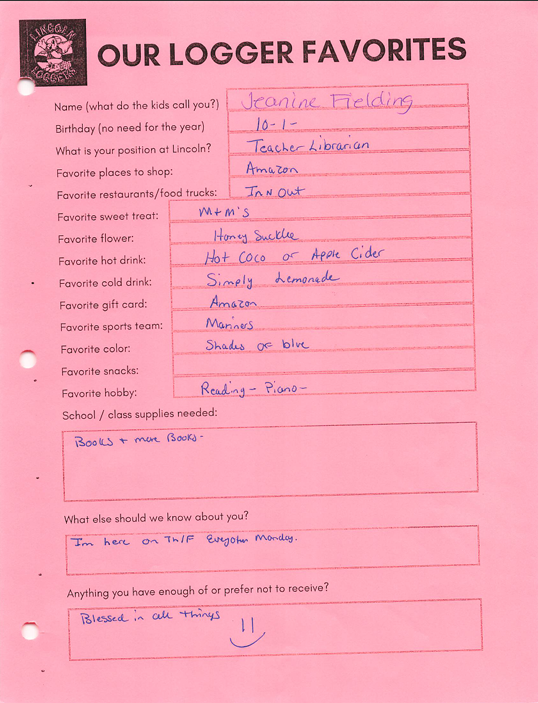 LINCOLN
LOGGERS
OUR LOGGER FAVORITES
Name (what do the kids call you?) Jeanine Fielding
Birthday (no need for the year) 10-1-
What is your position at Lincoln? Teacher Librarian
Favorite places to shop: Amazon
Favorite restaurants/food trucks: In N Out
Favorite sweet treat: M+M's
Favorite flower: Honey Suckle
Favorite hot drink: Hot Coco or Apple Cider
Favorite cold drink: Simply Lemonade
Favorite gift card: Amazon
Favorite sports team: Mariners
Favorite color: Shades of blue
Favorite snacks:
Favorite hobby: Reading - Piano -
School / class supplies needed:
Books + more Books -
What else should we know about you?
Im here on Th/F Everyother Monday.
Anything you have enough of or prefer not to receive?
Blessed in all things